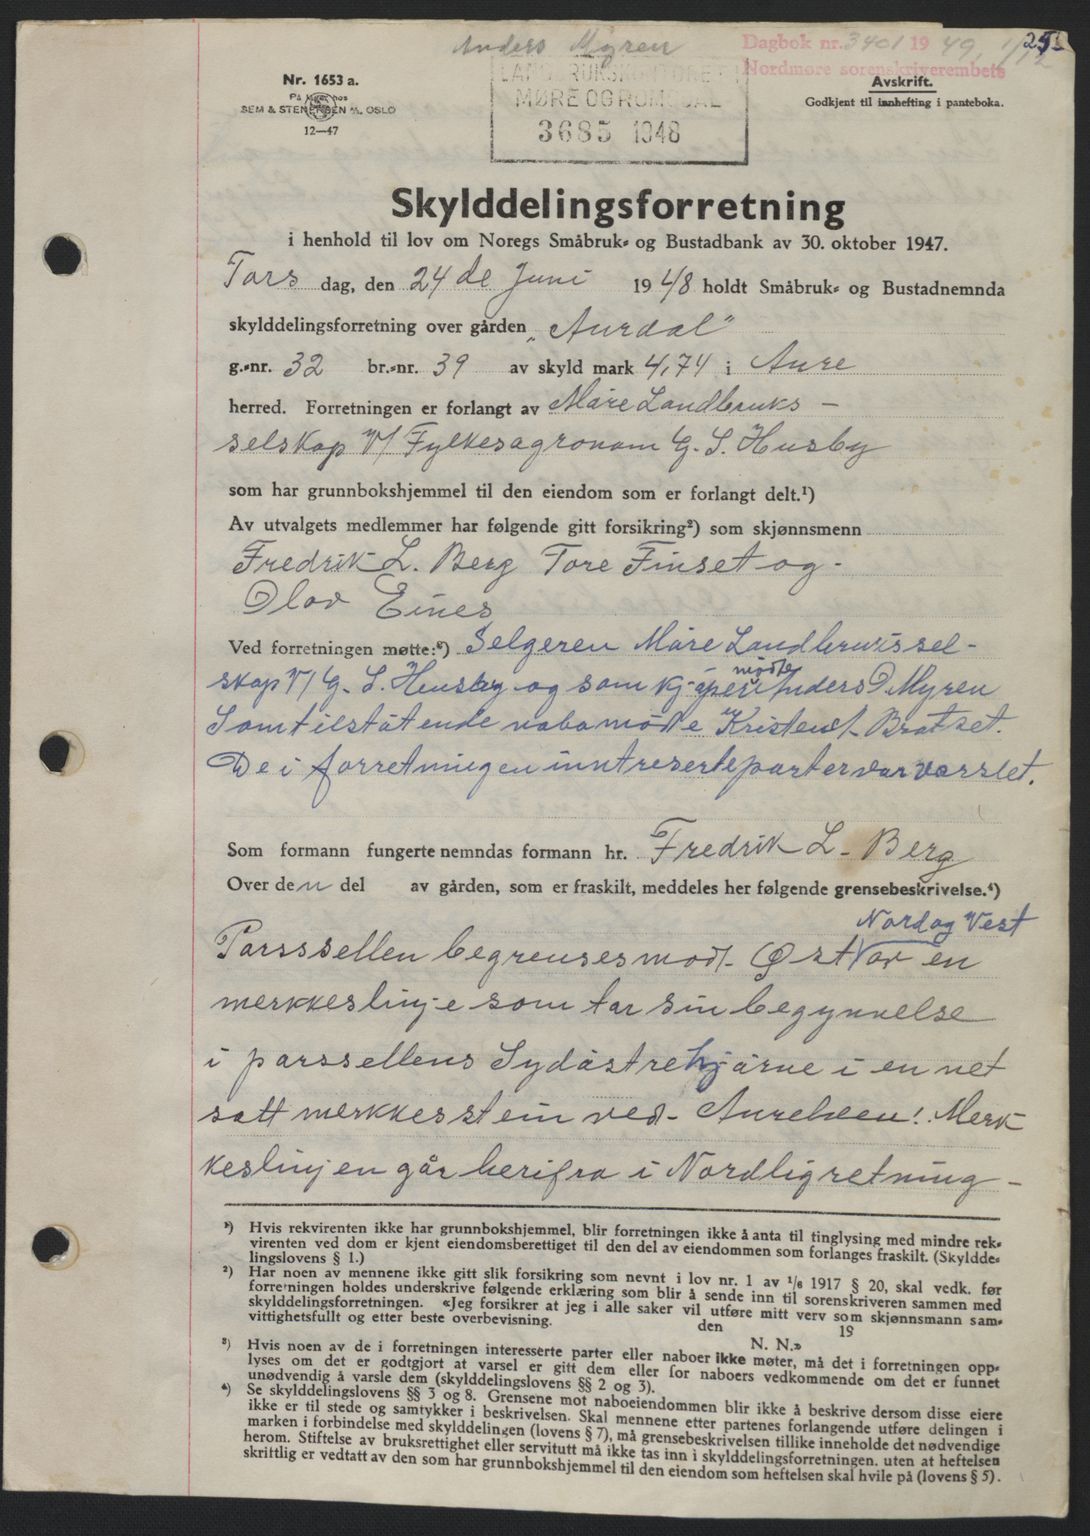 Anders Myren
Dagbok nr. 3401 1949, 1/12
Nordmøre sorenskriverembete
Nr. 1653 a.
På lager hos
SEM & STENERSEN A/S, OSLO
12—47
LANDBRUKSKONTORET
MØRE OG ROMSDAL
3685 1948
Avskrift.
Godkjent til innhefting i panteboka.
Skylddelingsforretning
i henhold til lov om Noregs Småbruk- og Bustadbank av 30. oktober 1947.
Tors dag, den 24 de Juni 1948 holdt Småbruk- og Bustadnemnda
skylddelingsforretning over gården „Aurdal"
g.-nr. 32 br.-nr. 39 av skyld mark 4,74 i Aure
herred. Forretningen er forlangt av Møre Landbruks -
selskap V/ Fylkesagronom G. S. Husby
som har grunnbokshjemmel til den eiendom som er forlangt delt.¹)
Av utvalgets medlemmer har følgende gitt forsikring²) som skjønnsmenn
Fredrik L. Berg Tore Finset og -
Olav Eines
Ved forretningen møtte:³) Selgeren Møre Landbrukssel-
møtte
skap V/ G. S. Husby og som kjøper Anders O Myren
Som tilstøtende nabo møtte Kristen Bratset.
De i forretningen inntreserte parter var varslet.
Som formann fungerte nemndas formann hr. Fredrik L. Berg
Over den del av gården, som er fraskilt, meddeles her følgende grensebeskrivelse.⁴)
Nord og Vest
Parssellen begrenses mot Øst av en
merkkeslinje som tar sin begynnelse
i parssellens Sydøstre hjørne i en net
satt merkkesstein ved Aureelven! Merk-
keslinjen går herifra i Nordlig retning -
¹) Hvis rekvirenten ikke har grunnbokshjemmel, blir forretningen ikke å anta til tinglysing med mindre rek-
virenten ved dom er kjent eiendomsberettiget til den del av eiendommen som forlanges fraskilt. (Skyldde-
lingslovens § 1.)
²) Har noen av mennene ikke gitt slik forsikring som nevnt i lov nr. 1 av ¹/₆ 1917 § 20, skal vedk. før
forretningen holdes underskrive følgende erklæring som blir å sende inn til sorenskriveren sammen med
skylddelingsforretningen. «Jeg forsikrer at jeg i alle saker vil utføre mitt verv som skjønnsmann sam-
vittighetsfullt og etter beste overbevisning. den 19
N. N.»
³) Hvis noen av de i forretningen interesserte parter eller naboer ikke møter, må det i forretningen opp-
lyses om det er godtgjort at varsel er gitt dem eller for naboers vedkommende om det er funnet
unødvendig å varsle dem (skylddelingslovens §§ 2 og 3).
⁴) Se skylddelingslovens §§ 3 og 8. Grensene mot naboeiendommen blir ikke å beskrive dersom disse eiere
ikke er til stede og samtykker i beskrivelsen. Skal mennene etter partenes forlangende utføre delingen i
marken i forbindelse med skylddelingen (lovens § 7), må grensebeskrivelsen tillike inneholde det nødvendige
herom. Stiftelse av bruksrettighet eller servitutt må ikke tas inn i skylddelingsforretningen. uten at heftelsen
skriftlig er vedtatt av den som har grunnbokshjemmel til den eiendom som heftelsen skal hvile på (lovens § 5).